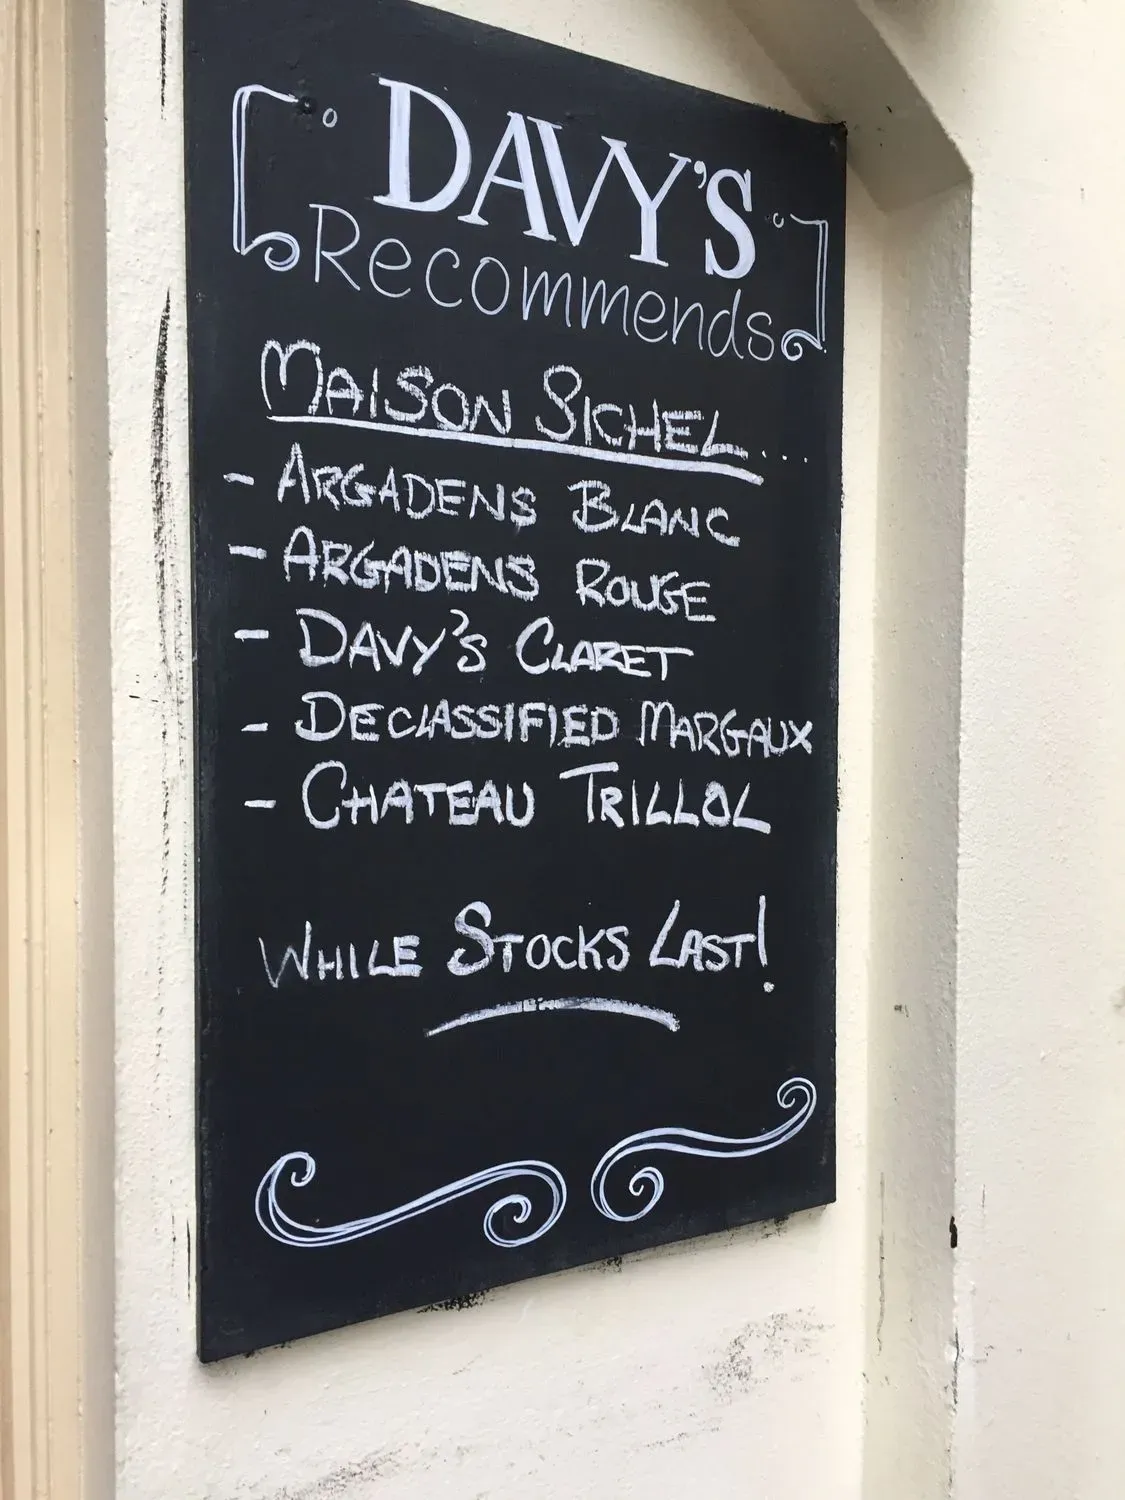 DAVY'S
Recommends
MAISON SICHEL...
- ARGADENS BLANC
- ARGADENS ROUGE
- DAVY'S CLARET
- DECLASSIFIED MARGAUX
- CHATEAU TRILLOL
WHILE STOCKS LAST!